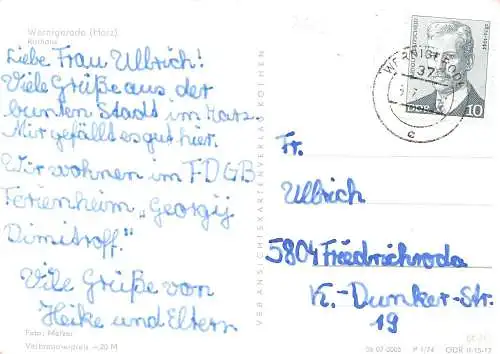 Wernigerode (Harz)
Rathaus
Liebe Frau Ullrich!
Viele Grüße aus der
bunten Stadt im Harz.
Mir gefällt es gut hier.
Wir wohnen im FDGB
Ferienheim „Georgij
Dimitroff."
Viele Grüße von
Heike und Eltern
Foto: Mellin
Verbraucherpreis -,20 M
VEB ANSICHTSKARTENVERLAG KÖTHEN
WERNIGERODE
37
DDR
10
Fr.
Ullrich
5804 Friedrichroda
K.-Dunker-Str.
19
06 07 0005 P 1/74 DDR II-15-13